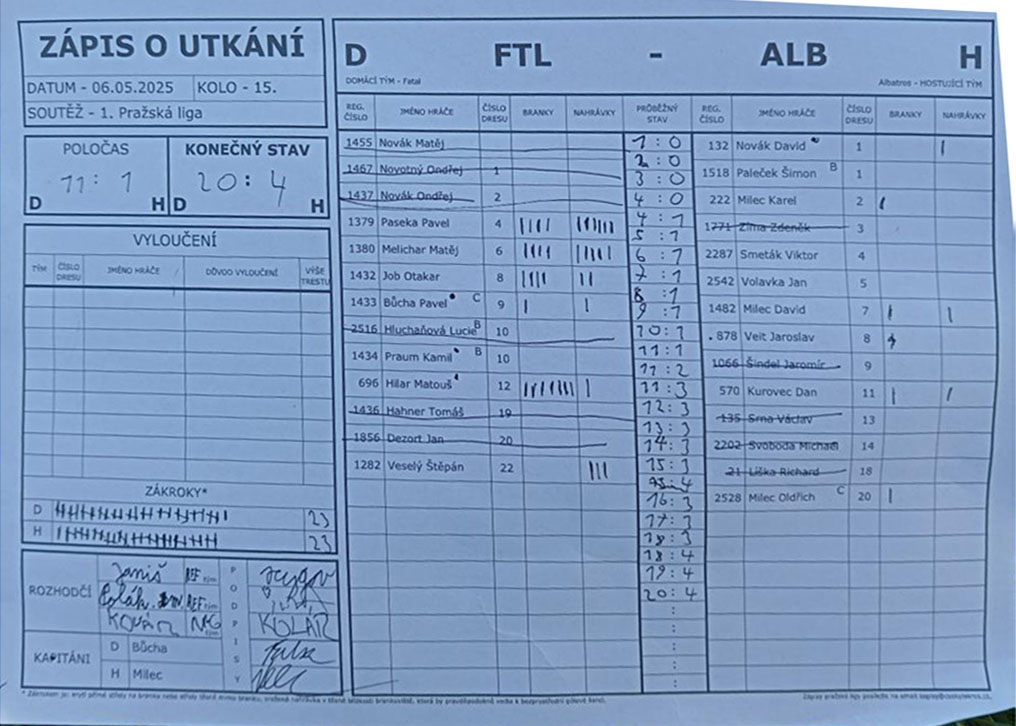 ZÁPIS O UTKÁNÍ
DATUM - 06.05.2025 KOLO - 15.
SOUTĚŽ - 1. Pražská liga
POLOČAS KONEČNÝ STAV
11 : 1 20 : 4
D H D H
VYLOUČENÍ
TÝM ČÍSLO DRESU JMÉNO HRÁČE DŮVOD VYLOUČENÍ VÝŠE TRESTU
ZÁKROKY*
D 23
H 23
ROZHODČÍ Janiš REF tým
REF tým
KOVÁŘ tým
PODPISY
KOLÁŘ
KAPITÁNI D Bůcha
H Milec
D FTL - ALB H
DOMÁCÍ TÝM - Fatal Albatros - HOSTUJÍCÍ TÝM
REG. ČÍSLO JMÉNO HRÁČE ČÍSLO DRESU BRANKY NAHRÁVKY PRŮBĚŽNÝ STAV REG. ČÍSLO JMÉNO HRÁČE ČÍSLO DRESU BRANKY NAHRÁVKY
1455 Novák Matěj
1467 Novotný Ondřej 1
1437 Novák Ondřej 2
1379 Paseka Pavel 4 |||| ||||||
1380 Melichar Matěj 6 |||| |||||
1432 Job Otakar 8 |||| ||
1433 Bůcha Pavel C 9 | |
2516 Hluchaňová Lucie B 10
1434 Praum Kamil B 10
696 Hilar Matouš 12 ||||||| |
1436 Hahner Tomáš 19
1856 Dezort Jan 20
1282 Veselý Štěpán 22 |||
1 : 0
2 : 0
3 : 0
4 : 0
4 : 1
5 : 1
6 : 1
7 : 1
8 : 1
9 : 1
10 : 1
11 : 1
11 : 2
11 : 3
12 : 3
13 : 3
14 : 3
15 : 3
15 : 4
16 : 3
17 : 3
18 : 3
18 : 4
19 : 4
20 : 4
:
:
:
:
132 Novák David 1 |
1518 Paleček Šimon B 1
222 Milec Karel 2 |
1771 Zíma Zdeněk 3
2287 Smeták Viktor 4
2542 Volavka Jan 5
1482 Milec David 7 | |
878 Veit Jaroslav 8
1066 Šindel Jaromír 9
570 Kurovec Dan 11 | |
135 Srna Václav 13
2202 Svoboda Michael 14
21 Liška Richard 18
2528 Milec Oldřich C 20 |